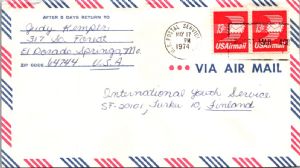 AFTER 5 DAYS RETURN TO
Judy Kemper
317 So. Forest
El Dorado Springs, Mo.
ZIP CODE 64744 U.S.A.
U.S. POSTAL SERVICE
MAY 17
PM
1974
13c
USAirmail
13c
USAirmail
VIA AIR MAIL
International Youth Service
SF-20101, Turku 10, Finland